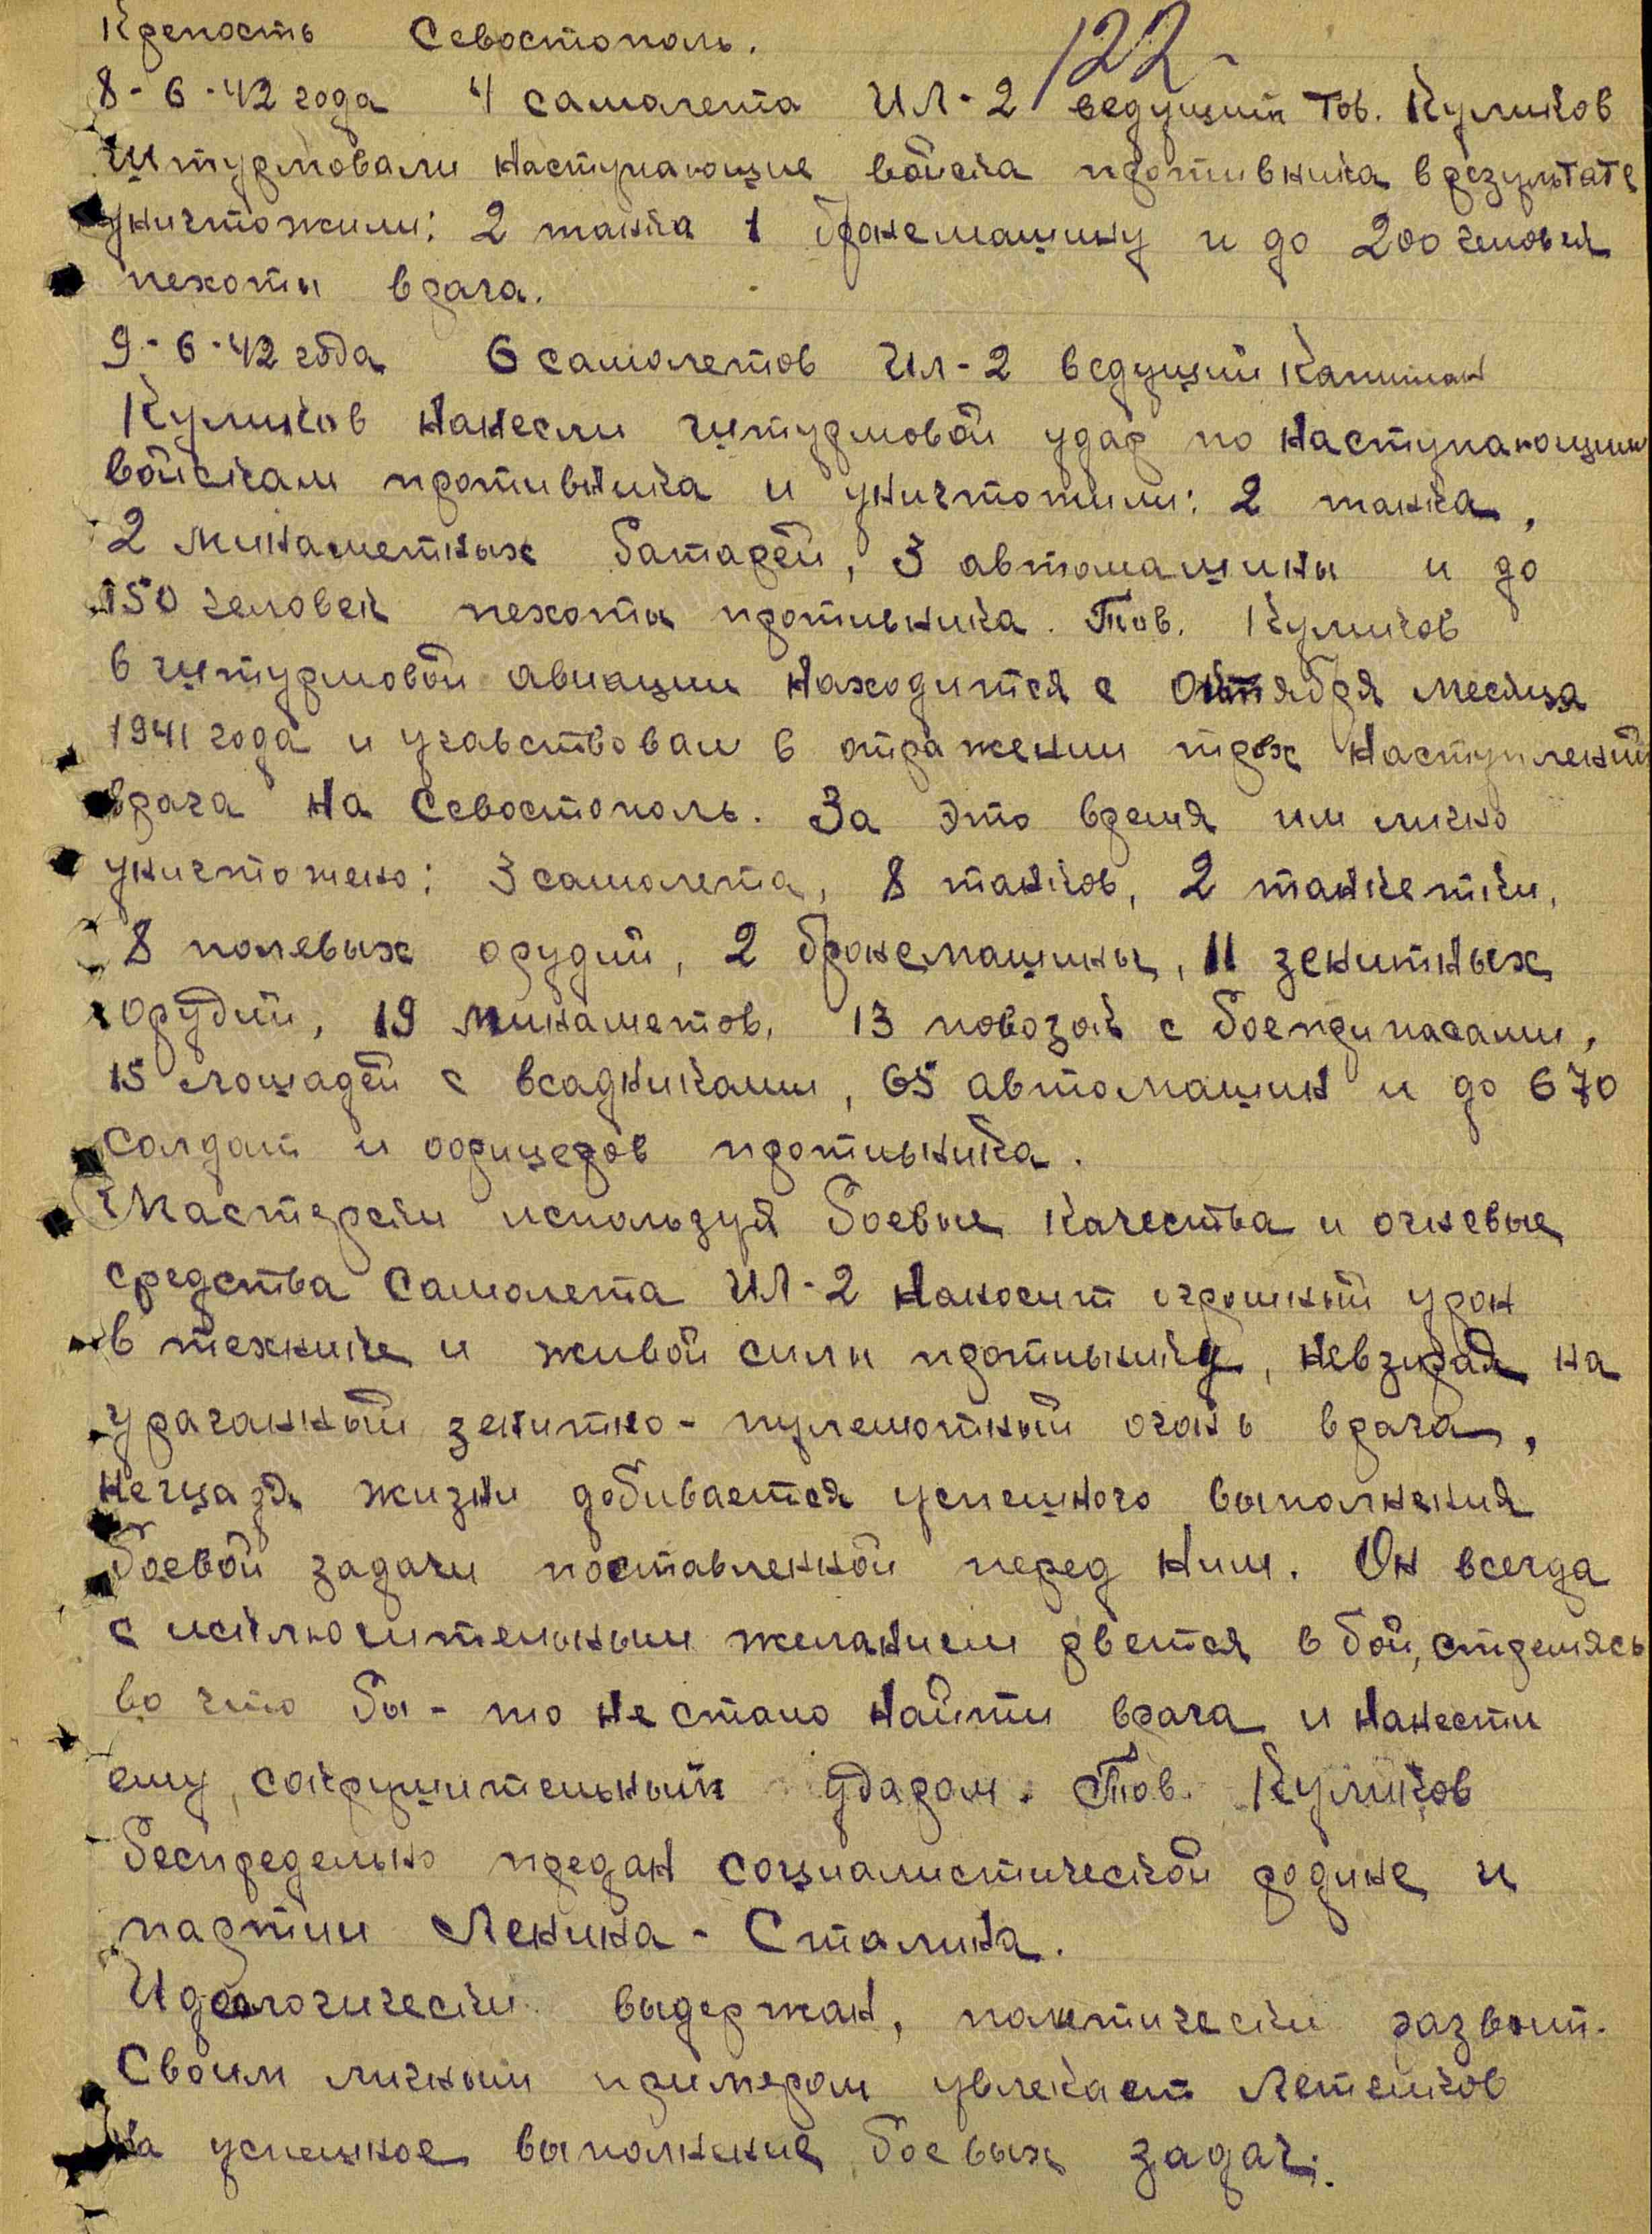 Крепость Севостополь.
122
8-6-42 года 4 самолета ИЛ-2 ведущий тов. Куликов
штурмовали наступающие войска противника в результате
уничтожили: 2 танка 1 бронемашину и до 200 человек
пехоты врага.
9-6-42 года 6 самолетов Ил-2 ведущий Капитан
Куликов нанесли штурмовой удар по наступающим
войскам противника и уничтожили: 2 танка,
2 минаметных батарей, 3 автомашины и до
150 человек пехоты противника. Тов. Куликов
в штурмовой авиации находится с октября месяца
1941 года и учавствовал в отражении трех наступлений
врага на Севостополь. За это время им лично
уничтожено: 3 самолета, 8 танков, 2 танкетки,
8 полевых орудий, 2 бронемашины, 11 зенитных
орудий, 19 минаметов, 13 повозок с боеприпасами,
15 лошадей с всадниками, 65 автомашин и до 670
солдат и офицеров противника.
Мастерски используя боевые качества и огневые
средства самолета ИЛ-2 наносит огромный урон
в технике и живой силы противнику, невзирая на
ураганный зенитно-пулеметный огонь врага,
нещадя жизни добивается успешного выполнения
боевой задачи поставленной перед ним. Он всегда
с исключительным желанием рвется в бой, стремясь
во что бы-то не стало найти врага и нанести
ему сокрушительный ударом. Тов. Куликов
беспредельно предан социалистической родине и
партии Ленина-Сталина.
Идеологически выдержан, политически развит.
Своим личным примером увлекает летчиков
на успешное выполнение боевых задач.